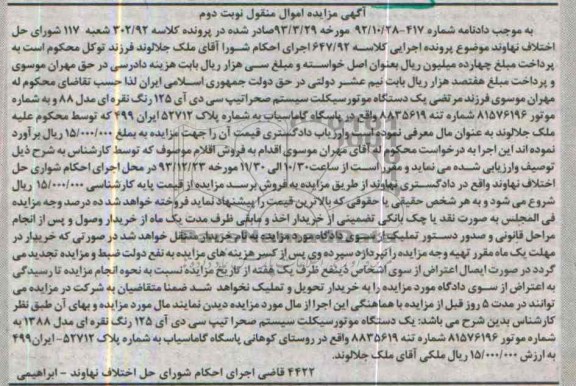 آگهی مزایده اموال منقول نوبت دوم
به موجب دادنامه شماره ۴۱۷-۹۲/۱۰/۲۸ مورخه ۹۳/۳/۲۹ صادر شده در پرونده کلاسه ۳۰۲/۹۲ شعبه ۱۱۷ شورای حل
اختلاف نهاوند موضوع پرونده اجرایی کلاسه ۶۴۷/۹۲ اجرای احکام شورا آقای ملک جلالوند فرزند توکل محکوم است به
پرداخت مبلغ چهارده میلیون ریال بعنوان اصل خواسته و مبلغ سی هزار ریال بابت هزینه دادرسی در حق مهران موسوی
و پرداخت مبلغ هفتصد هزار ریال بابت نیم عشر دولتی در حق دولت جمهوری اسلامی ایران لذا حسب تقاضای محکوم له
مهران موسوی فرزند مرتضی یک دستگاه موتورسیکلت سیستم صحرا تیپ سی دی آی ۱۲۵ رنگ نقره ای مدل ۸۸ و به شماره
موتور ۸۱۵۷۶۱۹۶ شماره تنه ۸۸۳۵۶۱۹ واقع در پاسگاه گاماسیاب به شماره پلاک ۵۲۷۱۲ ایران ۴۹۹ که توسط محکوم علیه
ملک جلالوند به عنوان مال معرفی نموده است وارزیاب دادگستری قیمت آن را جهت مزایده به مبلغ ۱۵/۰۰۰/۰۰۰ ریال برآورد
نموده اند این اجرا به درخواست محکوم له آقای مهران موسوی اقدام به فروش اقلام موصوف که توسط کارشناس به شرح ذیل
توصیف وارزیابی شده می نماید و مقرر است از ساعت ۱۰/۳۰ الی ۱۱/۳۰ مورخه ۹۳/۱۲/۲۳ در محل اجرای احکام شوازی حل
اختلاف نهاوند واقع در دادگستری نهاوند از طریق مزایده به فروش برسد مزایده از قیمت پایه کارشناسی ۱۵/۰۰۰/۰۰۰ ریال
شروع می شود و به هر شخص حقیقی یا حقوقی که بالاترین قیمت را پیشنهاد نماید فروخته خواهد شد ده درصد وجه مزایده
فی المجلس به صورت نقد یا چک بانکی تضمینی از خریدار اخذ و مابقی ظرف مدت یک ماه از خریدار وصول و پس از انجام
مراحل قانونی و صدور دستور تملیک از سوی دادگاه مورد مزایده به نام خریدار منتقل خواهد شد در صورتی که خریدار در
مهلت یک ماه مقرر تهیه وجه مزایده را نپردازد سپرده وی پس از کسر هزینه های مزایده به نفع دولت ضبط و مزایده تجدید می
گردد در صورت ایصال اعتراض از سوی اشخاص ذینفع ظرف یک هفته از تاریخ مزایده نسبت به نحوه انجام مزایده تا رسیدگی
به اعتراض از سوی دادگاه مورد مزایده را به خریدار تحویل و تملیک نخواهد شد ضمنا متقاضیان به شرکت در مزایده می
توانند در مدت ۵ روز قبل از مزایده با هماهنگی این اجرا از مال مورد مزایده دیدن نمایند مال مورد مزایده و بهای آن طبق نظر
کارشناس بدین شرح می باشد: یک دستگاه موتورسیکلت سیستم صحرا تیپ سی دی آی ۱۲۵ رنگ نقره ای مدل ۱۳۸۸ به
شماره موتور ۸۱۵۷۶۱۹۶ شماره تنه ۸۸۳۵۶۱۹ واقع در روستای کوهانی پاسگاه گاماسیاب به شماره پلاک ۵۲۷۱۲-ایران ۴۹۹
به ارزش ۱۵/۰۰۰/۰۰۰ ریال ملکی آقای ملک جلالوند.
۴۴۲۲ قاضی اجرای احکام شورای حل اختلاف نهاوند - ابراهیمی